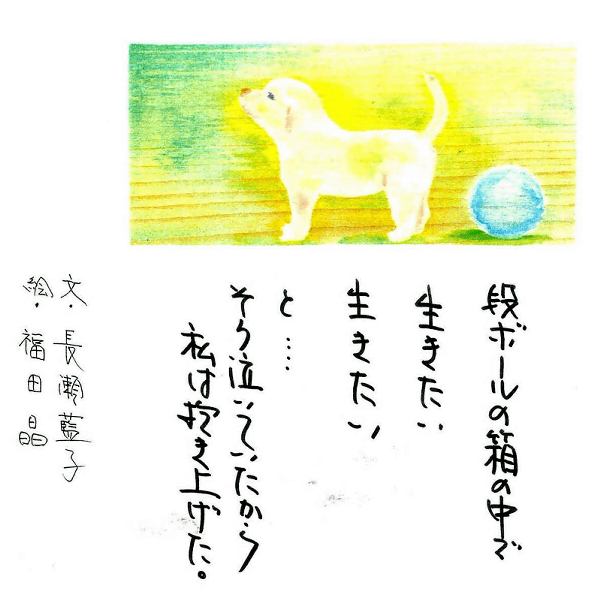 段ボールの箱の中で
生きたい
生きたい
と…
そう泣いていたから
私は抱き上げた。
文・長瀬藍子
絵・福田晶